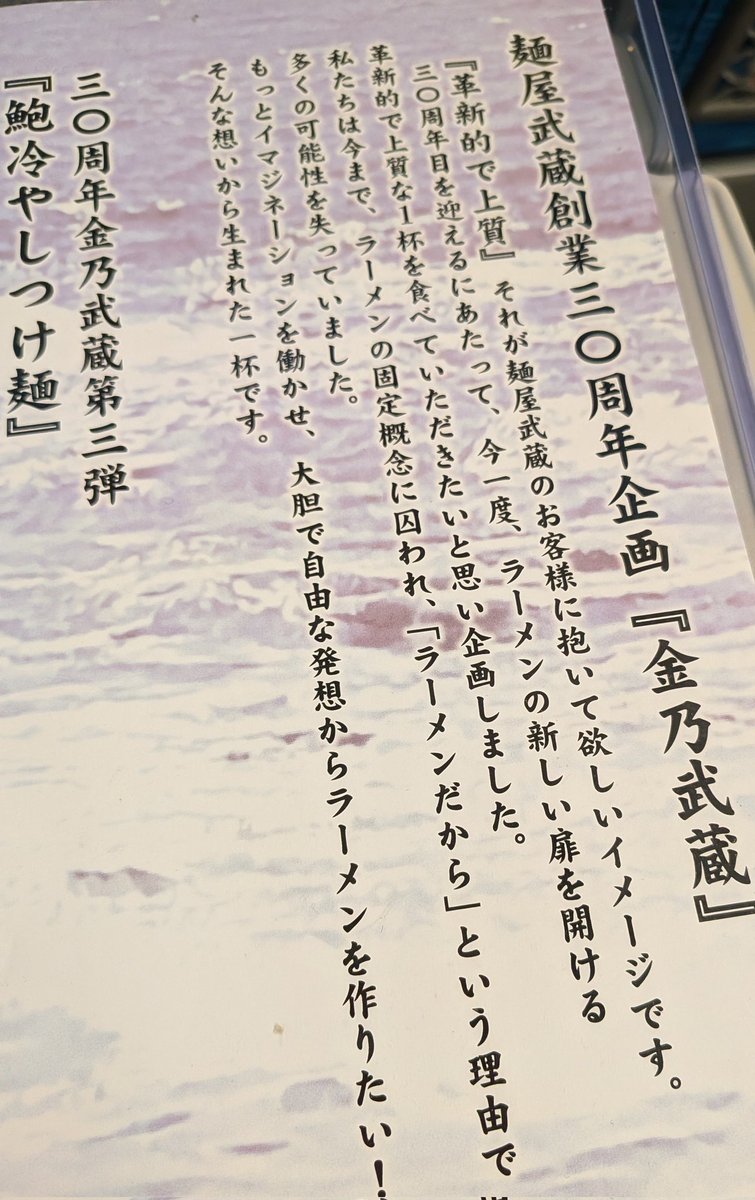 麺屋武蔵創業三〇周年企画『金乃武蔵』
『革新的で上質』それが麺屋武蔵のお客様に抱いて欲しいイメージです。
三〇周年目を迎えるにあたって、今一度、ラーメンの新しい扉を開ける
革新的で上質な1杯を食べていただきたいと思い企画しました。
私たちは今まで、ラーメンの固定概念に囚われ、「ラーメンだから」という理由で
多くの可能性を失っていました。
もっとイマジネーションを働かせ、大胆で自由な発想からラーメンを作りたい!
そんな想いから生まれた一杯です。
三〇周年金乃武蔵第三弾
『鮑冷やしつけ麺』